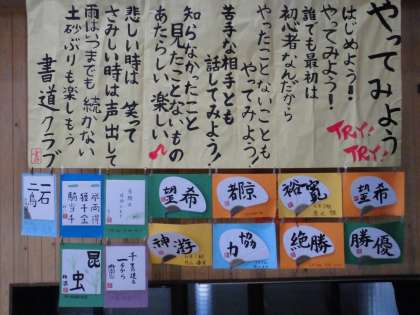 やってみよう
TRY!
TRY!
はじめよう!!
やってみよう!!
誰でも最初は
初心者なんだから
やったことないことも
やってみよう!
苦手な相手とも
話してみよう!
知らなかったこと
見たことないもの
あたらしい楽しい♪
悲しい時は 笑って
さみしい時は声出して
雨はいつまでも 続かない
土砂ぶりも楽しもう
書道クラブ
希望
寛裕
京都
希望
一石二鳥
優勝
絶勝
協力
神游
昆虫